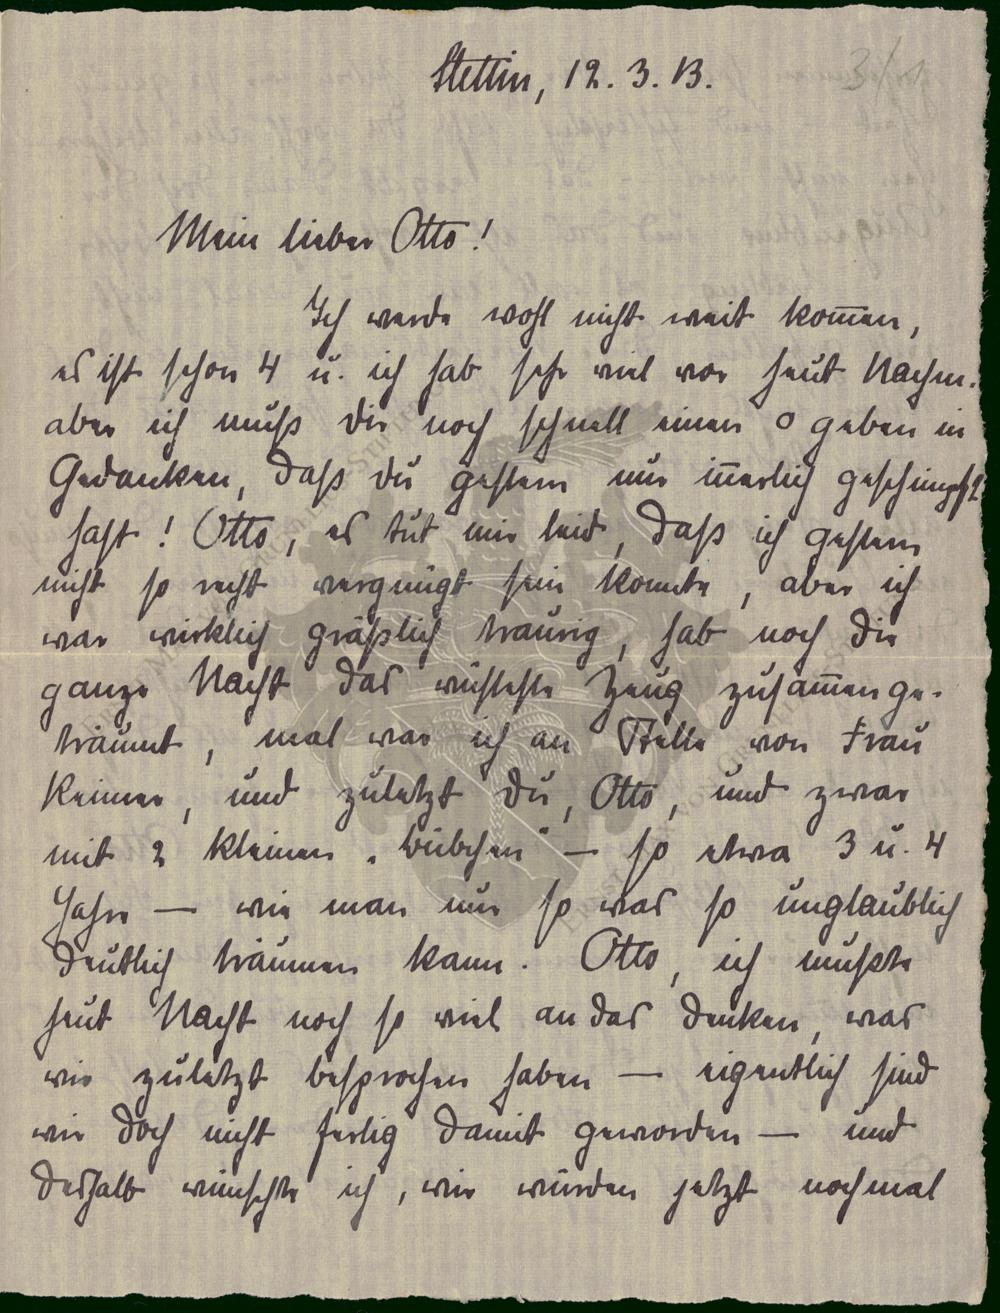 Stettin, 12. 3. 13.
Mein lieber Otto!
Ich werde wohl nicht weit kom̅en,
es ist schon 4 u. ich hab sehr viel vor heut Nachm.
aber ich muß dir noch schnell einen o geben in
Gedanken, daß du gestern nur in̅erlich geschimpft
hast! Otto, es tut mir leid, daß ich gestern
nicht so recht vergnügt sein konnte, aber ich
war wirklich gräßlich traurig, hab noch die
ganze Nacht das wüsteste Zeug zusam̅enge-
träumt, mal war ich an Stelle von Frau
Keimer, und zuletzt du, Otto, und zwar
mit 2 kleinen „Bübchen" — so etwa 3 u. 4
Jahre — wie man nur so was so unglaublich
deutlich träumen kann. Otto, ich mußte
heut Nacht noch so viel an das denken, was
wir zuletzt besprochen haben — eigentlich sind
wir doch nicht fertig damit geworden — und
deshalb wünschte ich, wir würden jetzt nochmal